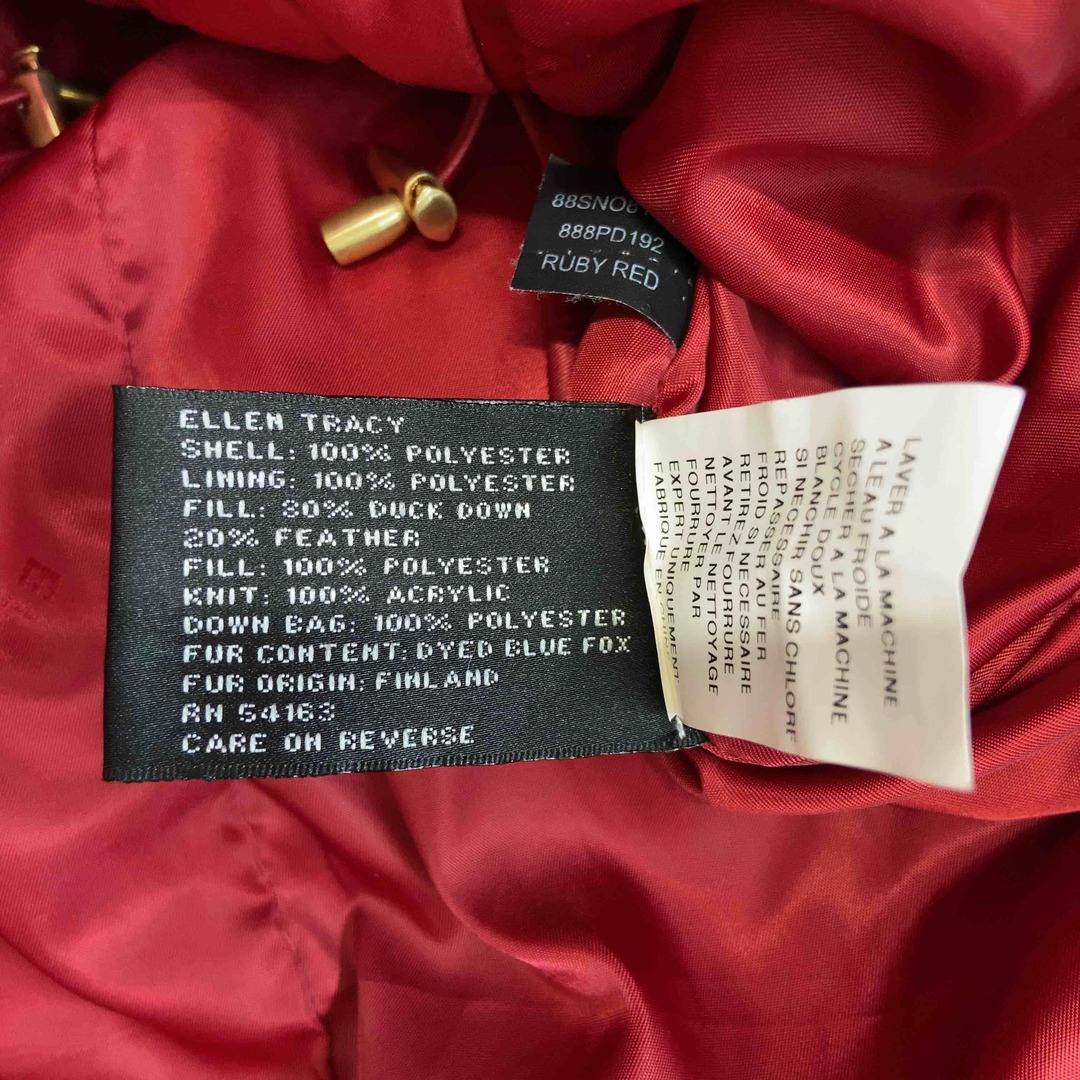 888PD192
RUBY RED
ELLEN TRACY
SHELL: 100% POLYESTER
LINING: 100% POLYESTER
FILL: 80% DUCK DOWN
20% FEATHER
FILL: 100% POLYESTER
KNIT: 100% ACRYLIC
DOWN BAG: 100% POLYESTER
FUR CONTENT: DYED BLUE FOX
FUR ORIGIN: FINLAND
RN 54163
CARE ON REVERSE
LAVER A LA MACHINE
A LEAU FROIDE
SECHER A LA MACHINE
CYCLE DOUX
BLANCH DOUX
SI NECHIR SANS CHLORE
REPASSAIRE
FROID SER AU FER
RETIREZ NECESSAIRE
AVANT LE FOURRURE
NETTOYER NETTOYAGE
FOURRURE PAR
EXPERT UNIQUEMENT
FABRIQUE EN